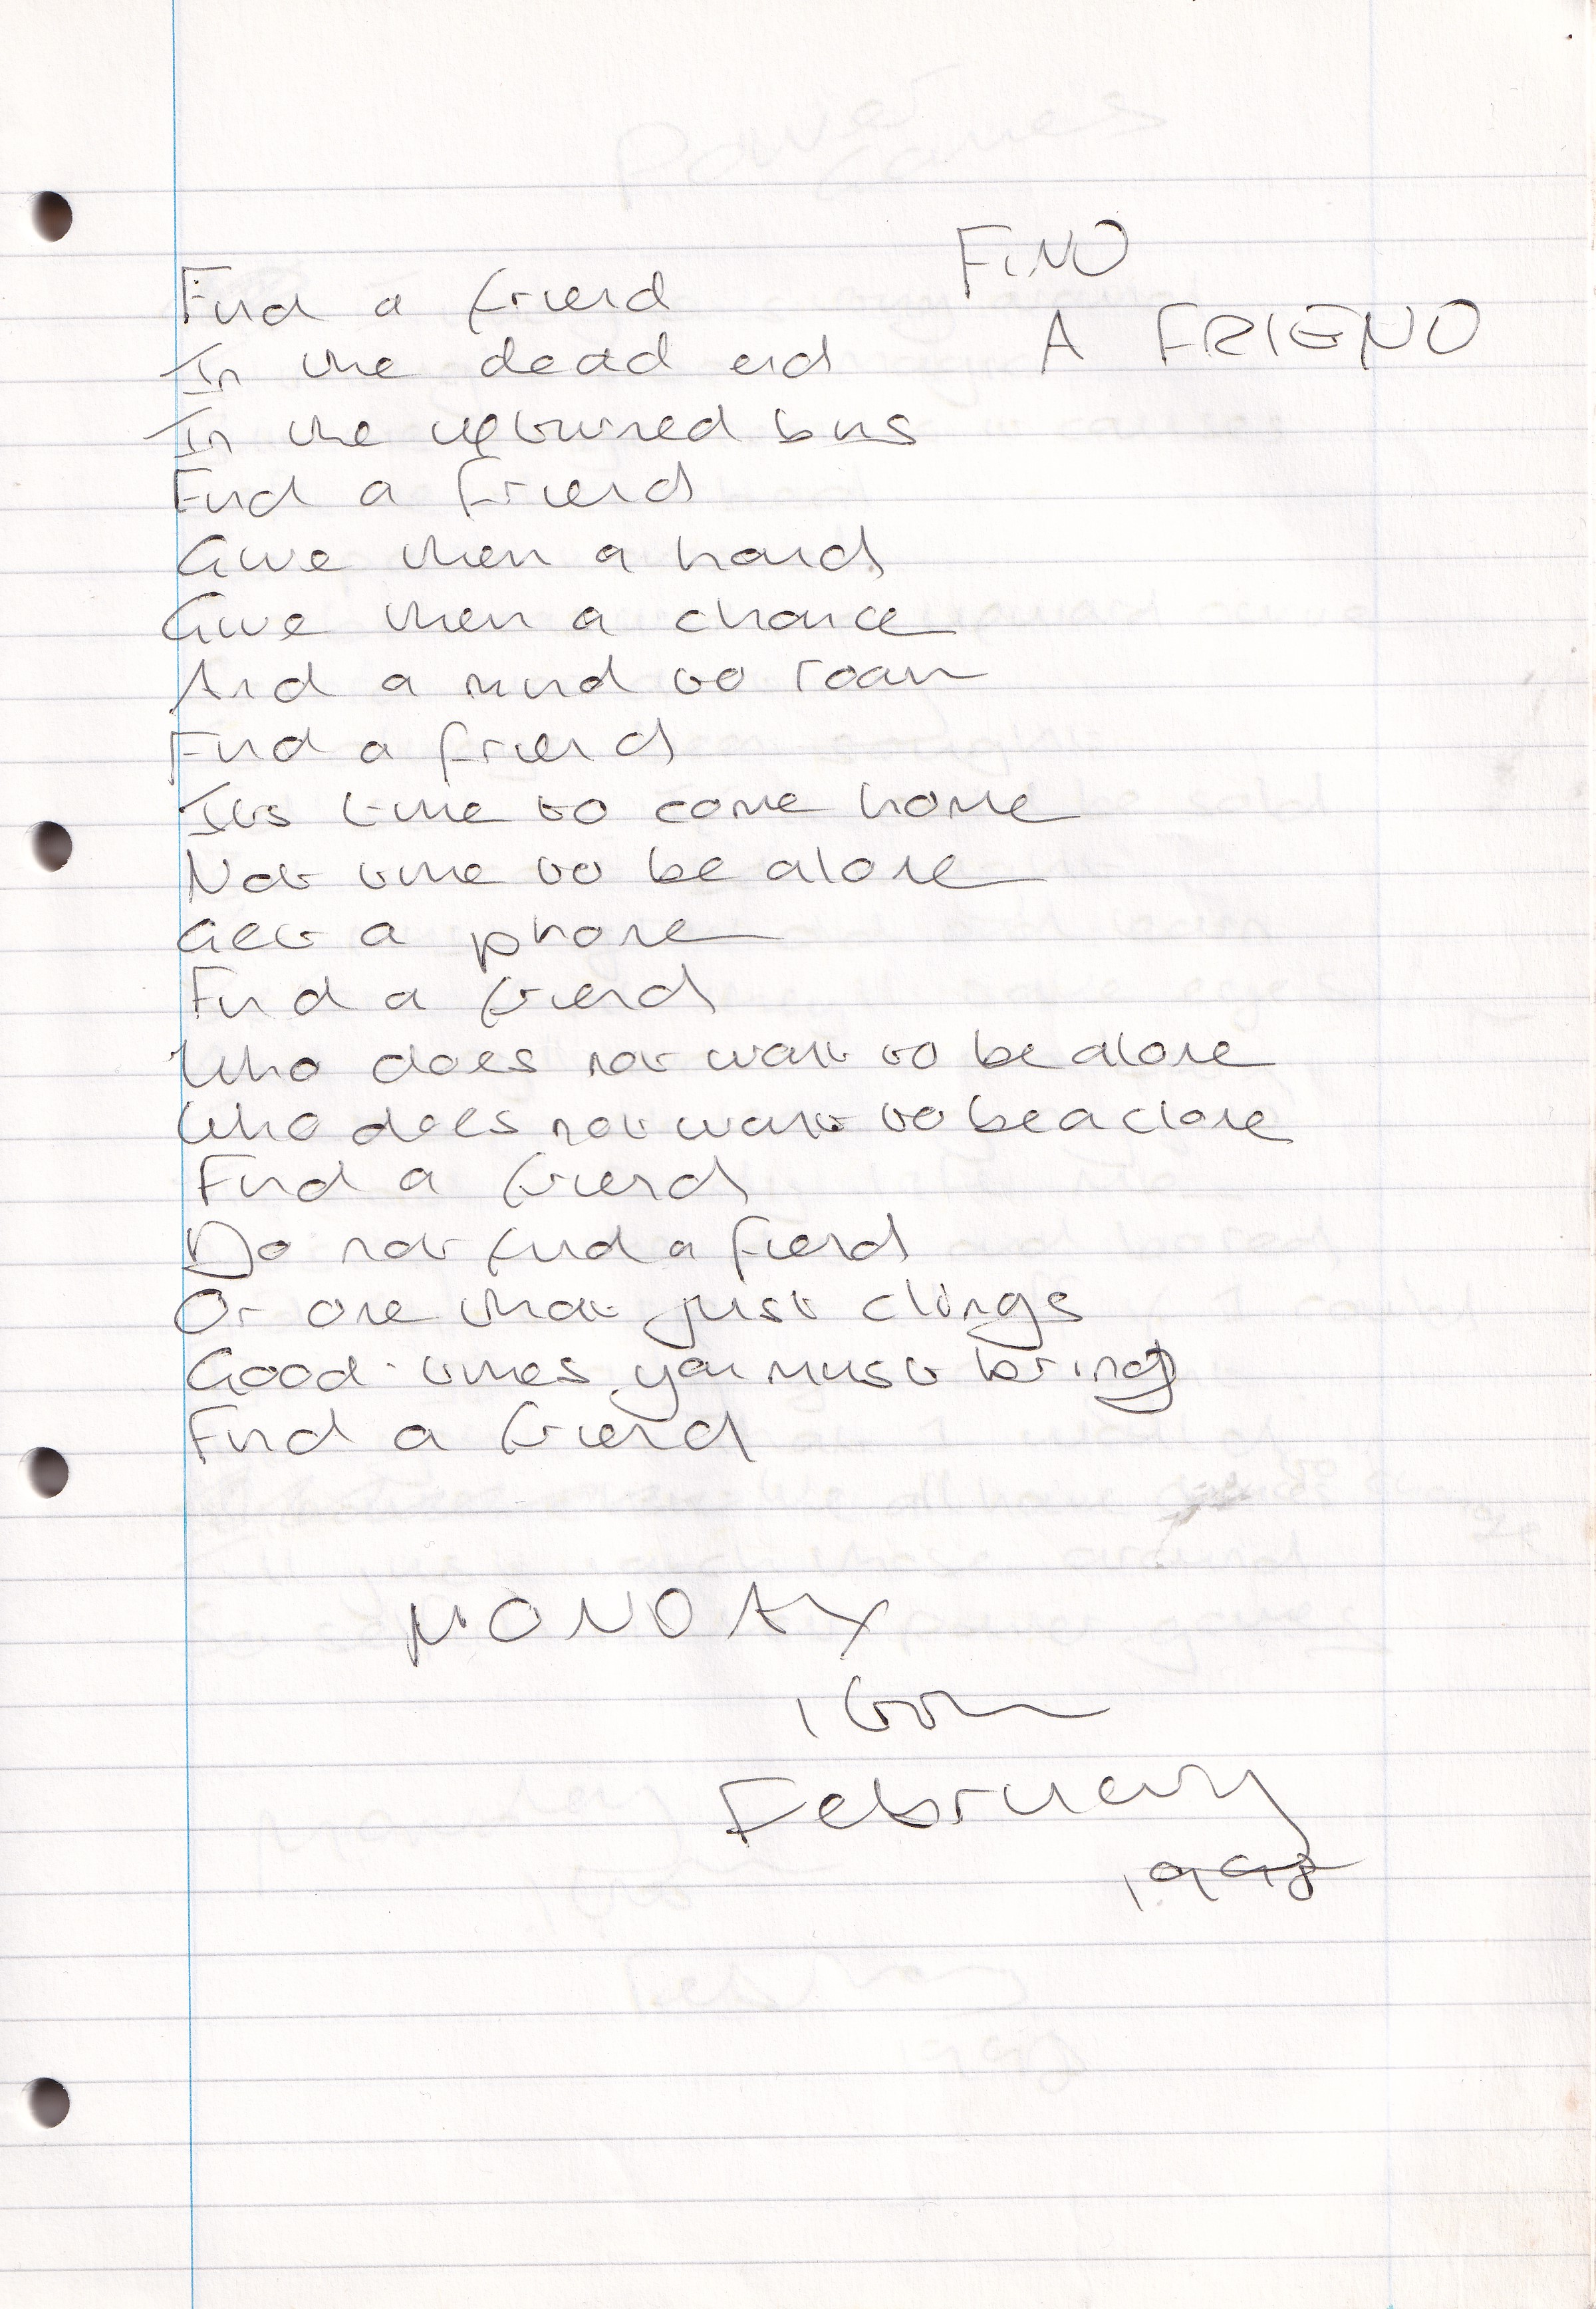 FIND
A FRIEND
Find a friend
In the dead end
In the upturned bus
Find a friend
Give them a hand
Give them a chance
And a mind to roam
Find a friend
Its time to come home
Not time to be alone
Get a phone
Find a friend
Who does not want to be alone
Who does not want to be a clone
Find a friend
Do not find a fiend
Or one that just clings
Good times you must bring
Find a friend
MONDAY
16th
February
1998